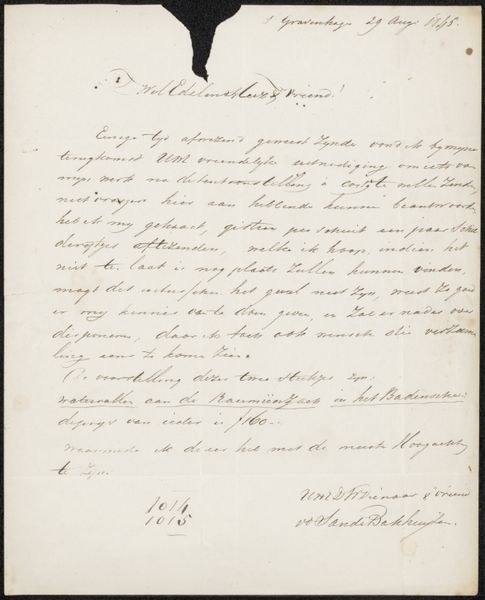 s Gravenhage 29 Aug 1845.
Wel Edele Heer & Vriend!
Eenige tyd afwezend geweest zynde vond ik by myne
terugkomst UW vriendelyke uitnodiging om iets van
myn werk na de tentoonstelling à costi te willen zenden
niet vroeger hier aan hebbende kunnen beantwoorden
heb ik my gehaast, gisteren per schuit een paar Schil
derytjes aftezenden, welke ik hoop, indien het
niet te laat is nog plaats zullen kunnen vinden,
mogt des het geval niet zyn, weest zo goed
er my kennis van te doen geven, ik zal er nader over
disponeren, daar ik toch ook wensch die verzame
ling eens te komen zien.
De voorstelling dezer twee stukjes zyn:
watervallen aan de in het Badensche:
de prys van ieder is ƒ160-
waarmede ik de eer heb met de meeste Hoogachting
te zyn
1014
1015
UWEd Dienaar & Vriend
vd Sande Bakhuyzen.